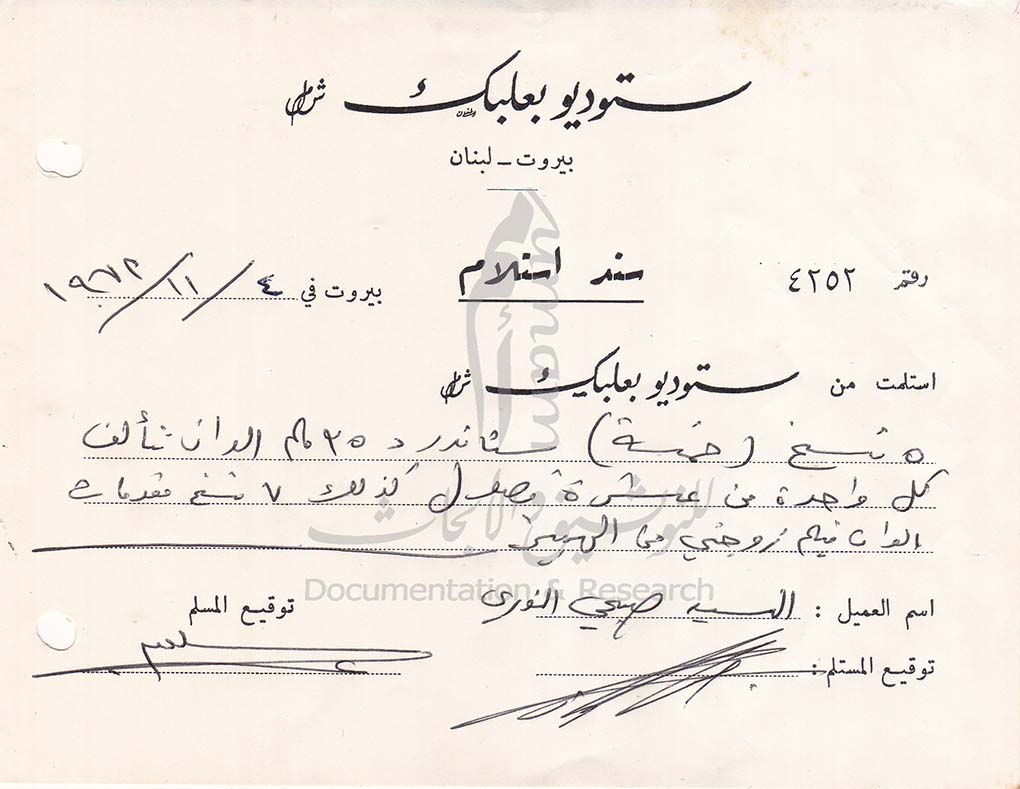 ستوديو بعلبك ش م ل
بيروت - لبنان
رقم ٤٢٥٢
سند استلام
بيروت في ٤ / ١١ / ١٩٧٢
استلمت من ستوديو بعلبك ش م ل
٥ نسخ (خمسة) ستاندرد ٣٥ ملم الوان تتألف
كل واحدة من عشرة فصول كذلك ٧ نسخ مقدمات
الوان فيلم زوجتي من الهيبز
اسم العميل : السيد صبحي النوري
توقيع المسلم
توقيع المستلم :
أمم umam
للتوثيق والأبحاث
Documentation & Research